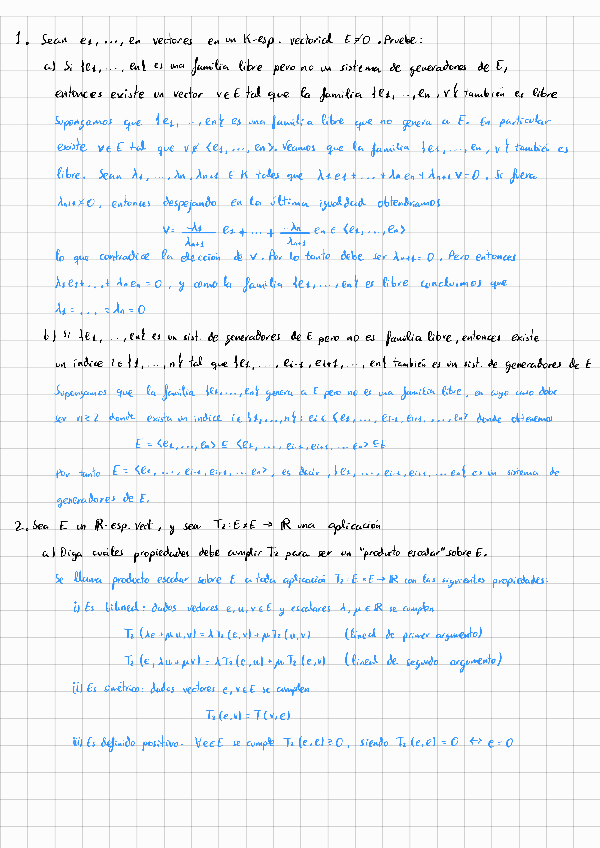 1. Sean e1, ..., en vectores en un K-esp. vectorial E≠0. Pruebe:
a) Si {e1, ..., en} es una familia libre pero no un sistema de generadores de E,
entonces existe un vector v∈E tal que la familia {e1, ..., en, v} también es libre
Supongamos que {e1, ..., en} es una familia libre que no genera a E. En particular
existe v∈E tal que v∉ <e1, ..., en>. Veamos que la familia {e1, ..., en, v} también es
libre. Sean λ1, ..., λn, λn+1 ∈ K tales que λ1e1 + ... + λn en + λn+1 v = 0. Si fuera
λn+1≠0, entonces despejando en la última igualdad obtendríamos
v = -λ1/λn+1 e1 + ... + -λn/λn+1 en ∈ <e1, ..., en>
lo que contradice la elección de v. Por lo tanto debe ser λn+1 = 0. Pero entonces
λ1e1 + ... + λn en = 0, y como la familia {e1, ..., en} es libre concluimos que
λ1 = ... = λn = 0
b) Si {e1, ..., en} es un sist. de generadores de E pero no es familia libre, entonces existe
un índice i∈{1, ..., n} tal que {e1, ..., ei-1, ei+1, ..., en} también es un sist. de generadores de E
Supongamos que la familia {e1, ..., en} genera a E pero no es una familia libre, en cuyo caso debe
ser n≥2 donde exista un índice i∈{1, ..., n}: ei ∈ <e1, ..., ei-1, ei+1, ..., en> donde obtenemos
E = <e1, ..., en> ⊆ <e1, ..., ei-1, ei+1, ... en> ⊆ E
Por tanto E = <e1, ..., ei-1, ei+1, ... en>, es decir, {e1, ..., ei-1, ei+1, ... en} es un sistema de
generadores de E.
2. Sea E un ℝ-esp. vect., y sea T2: E×E → ℝ una aplicación
a) Diga cuáles propiedades debe cumplir T2 para ser un "producto escalar" sobre E.
Se llama producto escalar sobre E a toda aplicación T2: E×E → ℝ con las siguientes propiedades:
i) Es bilineal: dados vectores e, u, v ∈ E y escalares λ, μ ∈ ℝ se cumplen
T2 (λe + μu, v) = λT2 (e, v) + μT2 (u, v) (lineal de primer argumento)
T2 (e, λu + μv) = λT2 (e, u) + μT2 (e, v) (lineal de segundo argumento)
ii) Es simétrico: dados vectores e, v ∈ E se cumplen
T2 (e, v) = T (v, e)
iii) Es definido positivo. ∀e∈E se cumple T2 (e, e) ≥ 0, siendo T2 (e, e) = 0 ↔ e = 0